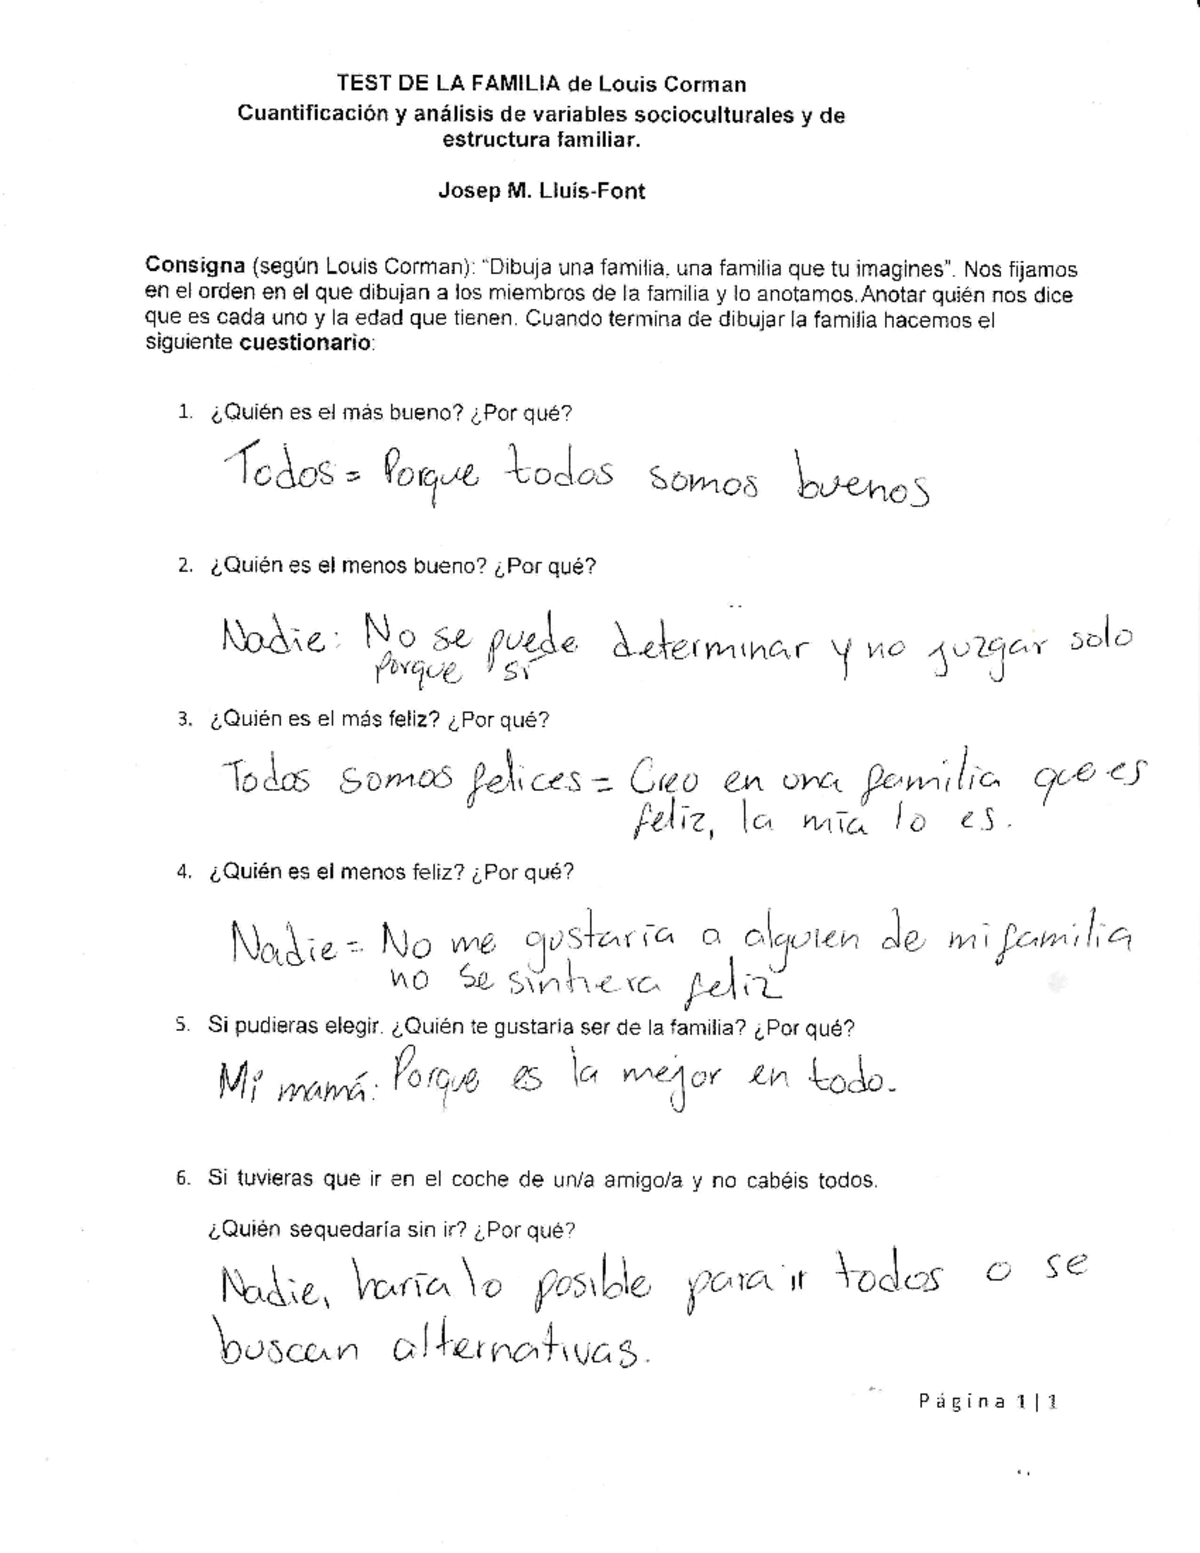 TEST DE LA FAMILIA de Louis Corman
Cuantificación y análisis de variables socioculturales y de
estructura familiar.
Josep M. Lluís-Font
Consigna (según Louis Corman): "Dibuja una familia, una familia que tu imagines". Nos fijamos
en el orden en el que dibujan a los miembros de la familia y lo anotamos.Anotar quién nos dice
que es cada uno y la edad que tienen. Cuando termina de dibujar la familia hacemos el
siguiente cuestionario:
1. ¿Quién es el más bueno? ¿Por qué?
Todos = Porque todos somos buenos
2. ¿Quién es el menos bueno? ¿Por qué?
Nadie: No se puede determinar y no juzgar solo
porque si
3. ¿Quién es el más feliz? ¿Por qué?
Todos somos felices = Creo en una familia que es
feliz, la mía lo es.
4. ¿Quién es el menos feliz? ¿Por qué?
Nadie = No me gustaría a alguien de mi familia
no se sintiera feliz
5. Si pudieras elegir. ¿Quién te gustaría ser de la familia? ¿Por qué?
Mi mamá: Porque es la mejor en todo.
6. Si tuvieras que ir en el coche de un/a amigo/a y no cabéis todos.
¿Quién sequedaría sin ir? ¿Por qué?
Nadie, haría lo posible para ir todos o se
buscan alternativas.
Página 1 | 1